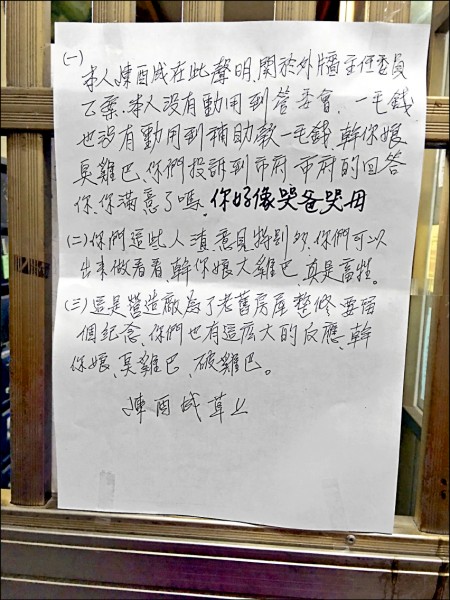 (一)
本人陳酉成在此聲明,關於外牆主任委員
乙案.本人沒有動用到管委會.一毛錢
也沒有動用到補助款一毛錢.幹你娘
臭雞巴.你們投訴到市府.市府的回答
你.你滿意了嗎.你好像哭爸哭母
(二)你們這些人渣意見特別多.你們可以
出來做看看.幹你娘大雞巴.真是畜牲。
(三)這是營造廠為了老舊房屋整修.要留
個紀念.你們也有這広大的反應.幹
你娘.臭雞巴.破雞巴。
陳酉成草上